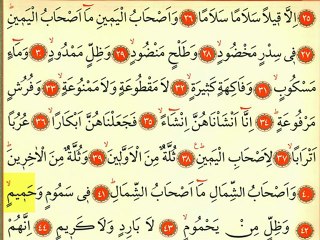 ﴿٢٥﴾ اِلَّا ق۪يلًا سَلَامًا سَلَامًا ﴿٢٦﴾ وَاَصْحَابُ الْيَم۪ينِ مَٓا اَصْحَابُ الْيَم۪ينِۜ
﴿٢٧﴾ ف۪ي سِدْرٍ مَخْضُودٍۙ ﴿٢٨﴾ وَطَلْحٍ مَنْضُودٍۙ ﴿٢٩﴾ وَظِلٍّ مَمْدُودٍۙ ﴿٣٠﴾ وَمَٓاءٍ
مَسْكُوبٍۙ ﴿٣١﴾ وَفَاكِهَةٍ كَث۪يرَةٍۙ ﴿٣٢﴾ لَا مَقْطُوعَةٍ وَلَا مَمْنُوعَةٍۙ ﴿٣٣﴾ وَفُرُشٍ
مَرْفُوعَةٍۜ ﴿٣٤﴾ اِنَّٓا اَنْشَأْنَاهُنَّ اِنْشَٓاءًۙ ﴿٣٥﴾ فَجَعَلْنَاهُنَّ اَبْكَارًاۙ ﴿٣٦﴾ عُرُبًا
اَتْرَابًاۙ ﴿٣٧﴾ لِاَصْحَابِ الْيَم۪ينِۜ ﴿٣٨﴾ ثُلَّةٌ مِنَ الْاَوَّل۪ينَۙ ﴿٣٩﴾ وَثُلَّةٌ مِنَ الْاٰخِر۪ينَۜ
﴿٤٠﴾ وَاَصْحَابُ الشِّمَالِ مَٓا اَصْحَابُ الشِّمَالِۜ ﴿٤١﴾ ف۪ي سَمُومٍ وَحَم۪يمٍۙ
﴿٤٢﴾ وَظِلٍّ مِنْ يَحْمُومٍۙ ﴿٤٣﴾ لَا بَارِدٍ وَلَا كَر۪يمٍ ﴿٤٤﴾ اِنَّهُمْ